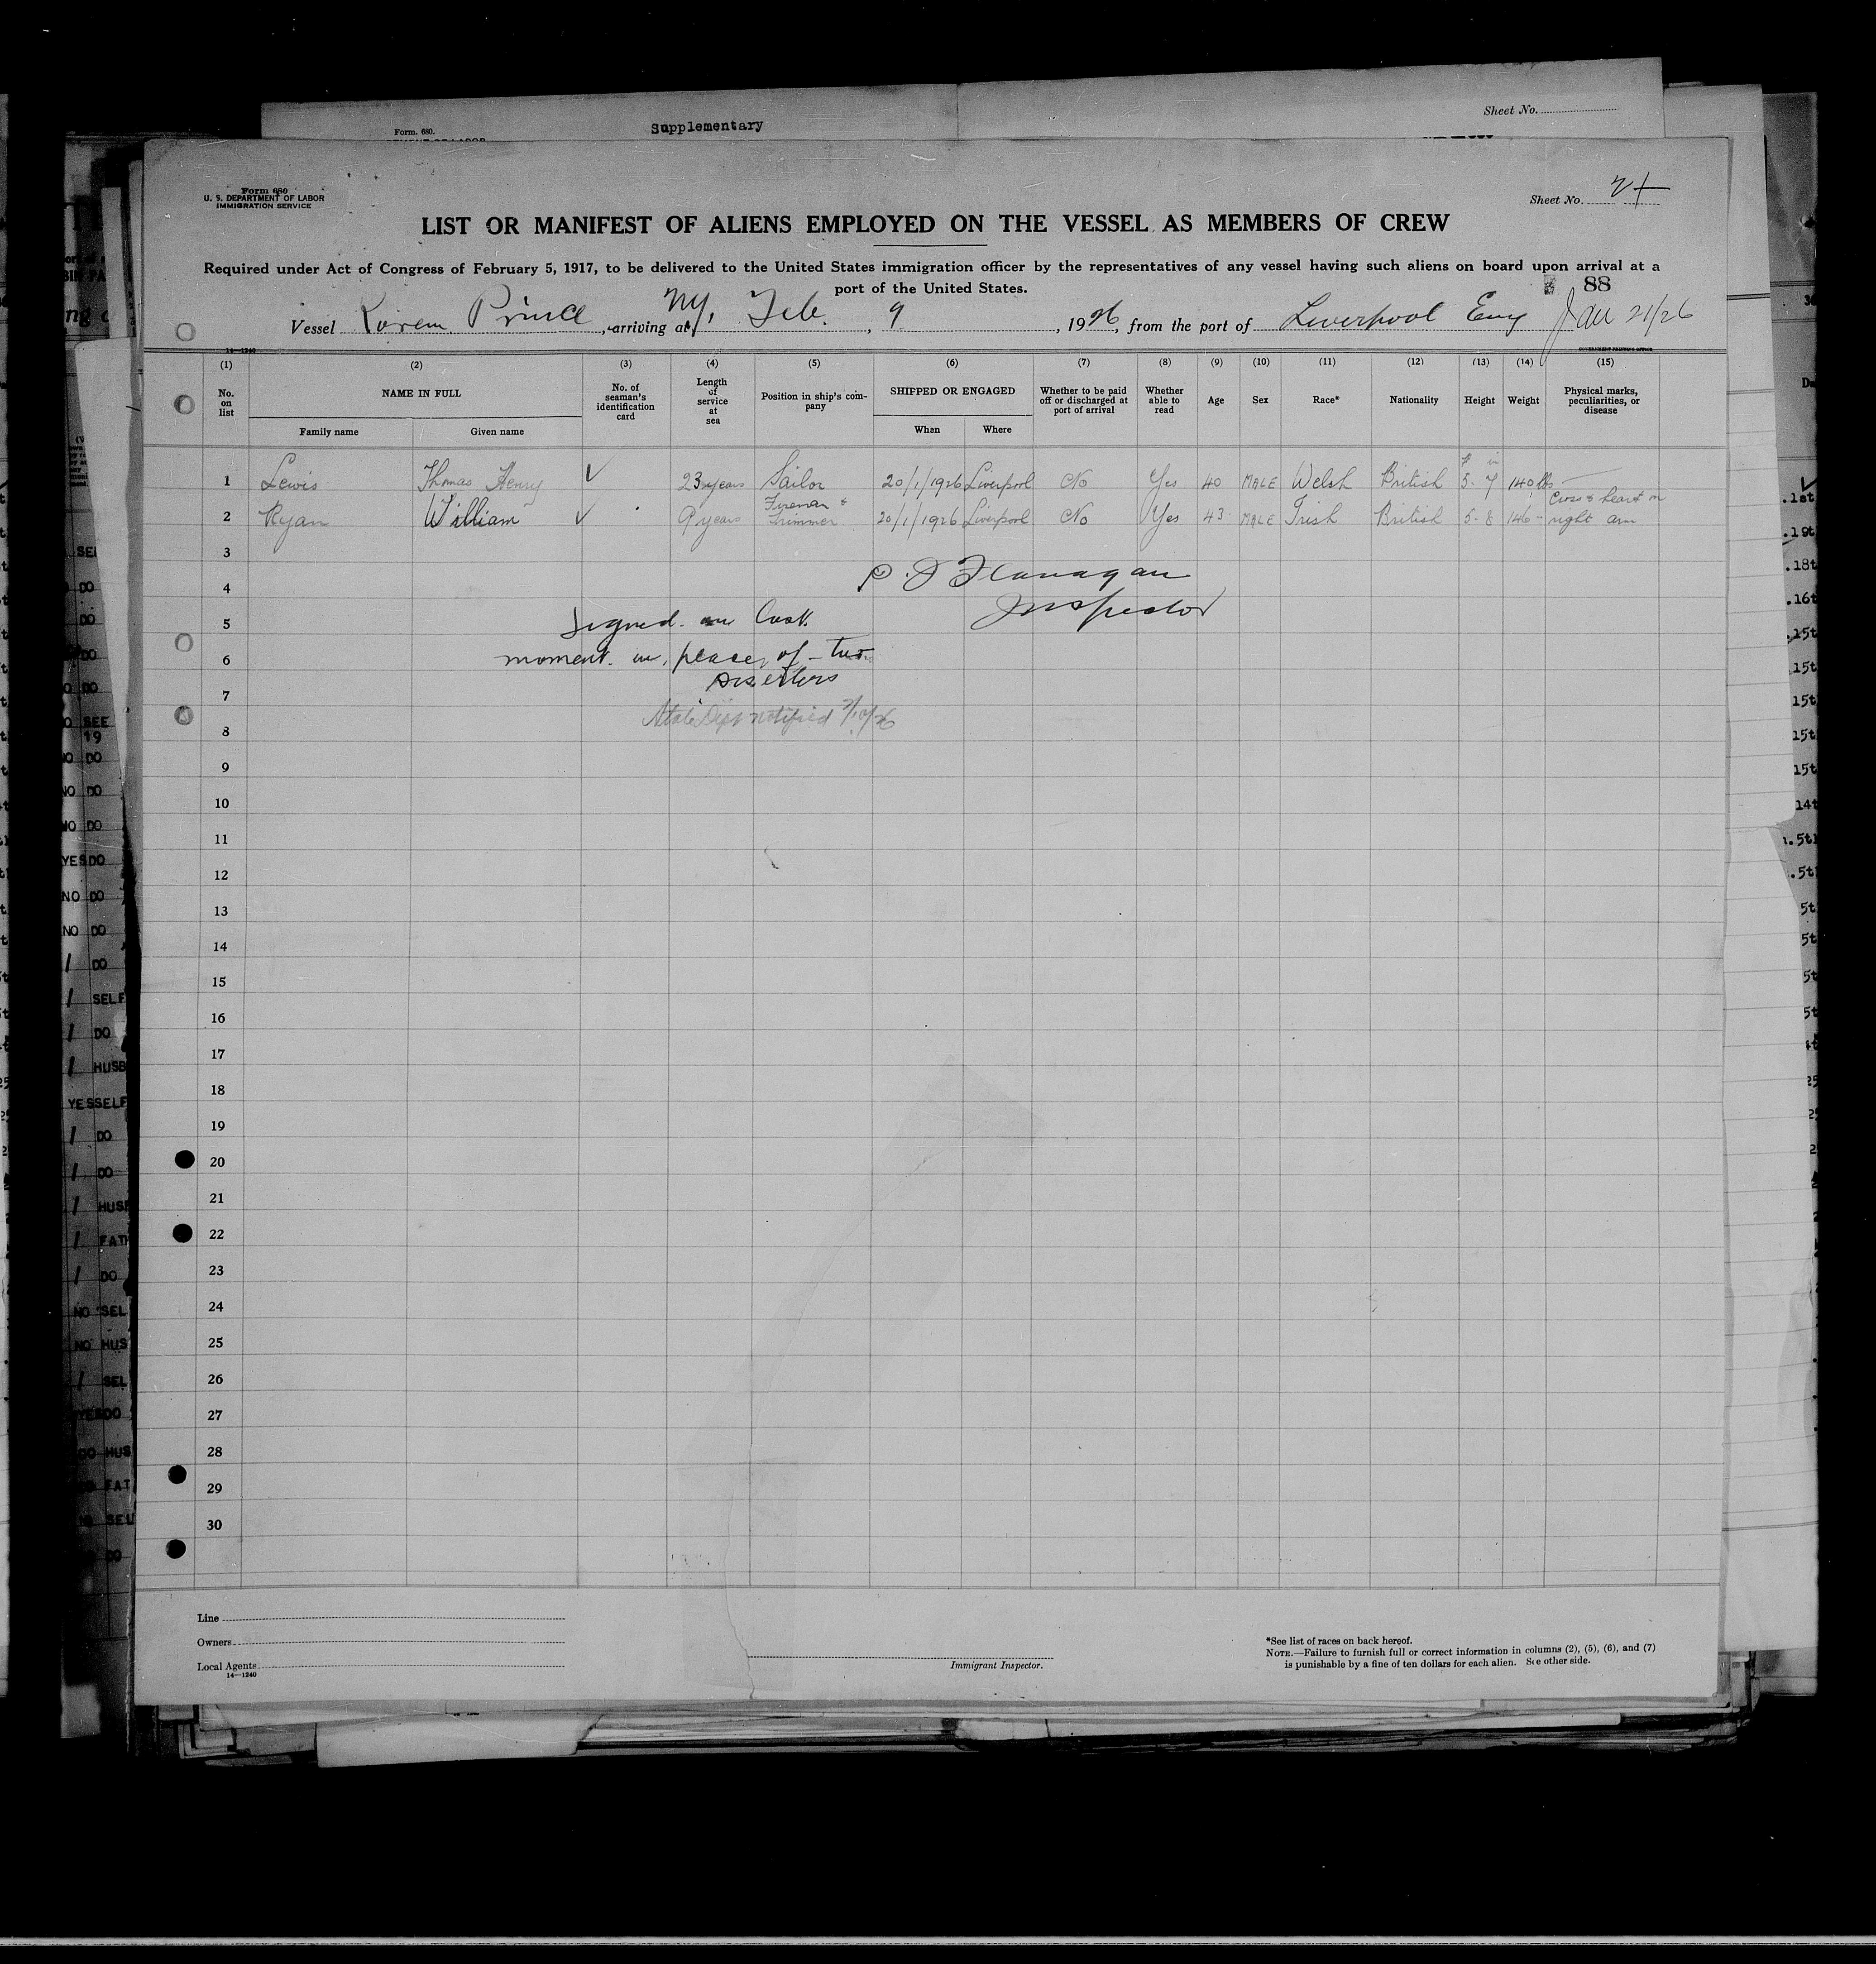 Form. 680.
Supplementary
Sheet No.
Form 680
U. S. DEPARTMENT OF LABOR
IMMIGRATION SERVICE
Sheet No.
LIST OR MANIFEST OF ALIENS EMPLOYED ON THE VESSEL AS MEMBERS OF CREW
Required under Act of Congress of February 5, 1917, to be delivered to the United States immigration officer by the representatives of any vessel having such aliens on board upon arrival at a
port of the United States.
88
Vessel Prince, arriving at N.Y., Feb. 9, 1926, from the port of Liverpool Eng Jan 21/26
14—1240
GOVERNMENT PRINTING OFFICE
(1) (2) (3) (4) (5) (6) (7) (8) (9) (10) (11) (12) (13) (14) (15)
No. on list NAME IN FULL No. of seaman's identification card Length of service at sea Position in ship's company SHIPPED OR ENGAGED Whether to be paid off or discharged at port of arrival Whether able to read Age Sex Race* Nationality Height Weight Physical marks, peculiarities, or disease
Family name Given name When Where
1 Lewis Thomas Henry 23 years Sailor 20/1/1926 Liverpool No Yes 40 MALE Welsh British 5-7 140 lbs
2 Ryan William 9 years Fireman & Trimmer 20/1/1926 Liverpool No Yes 43 MALE Irish British 5-8 146 Cross & heart on right arm
3
P. J. Flanagan
4
Inspector
5 Signed on last
6 moment in place of two
deserters
7
State Dept notified 2/10/26
8
9
10
11
12
13
14
15
16
17
18
19
20
21
22
23
24
25
26
27
28
29
30
Line
Owners
Local Agents
14—1240
Immigrant Inspector.
*See list of races on back hereof.
NOTE.—Failure to furnish full or correct information in columns (2), (5), (6), and (7)
is punishable by a fine of ten dollars for each alien. See other side.